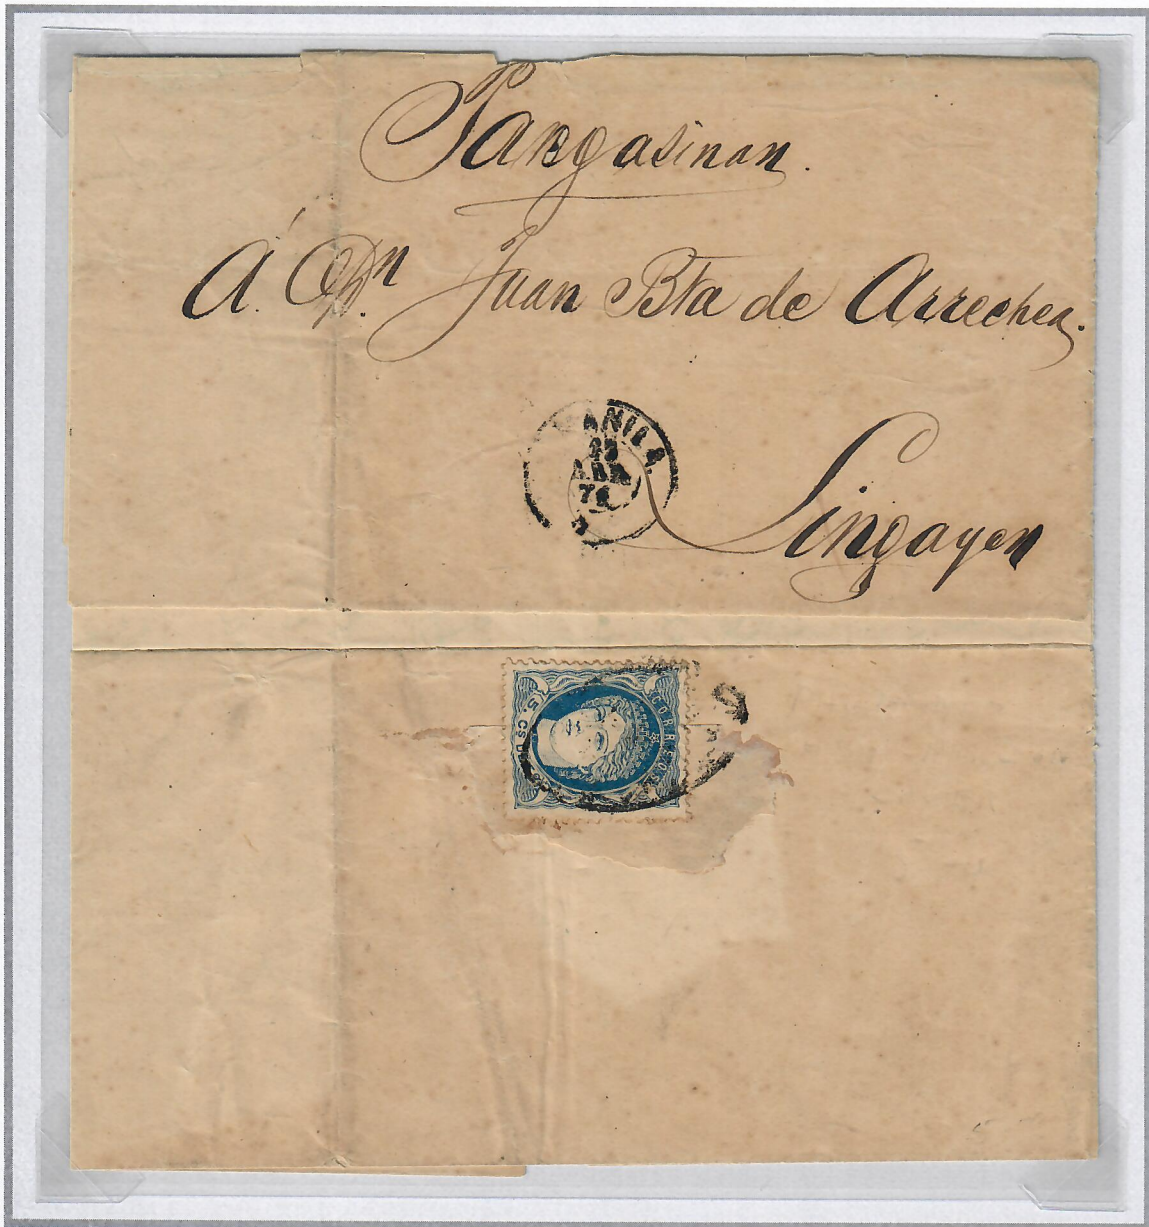 Pangasinan.
A. Dn. Juan Bta de Arrechea.
MANILA
ABR
Lingayen
CORREOS
5 CS